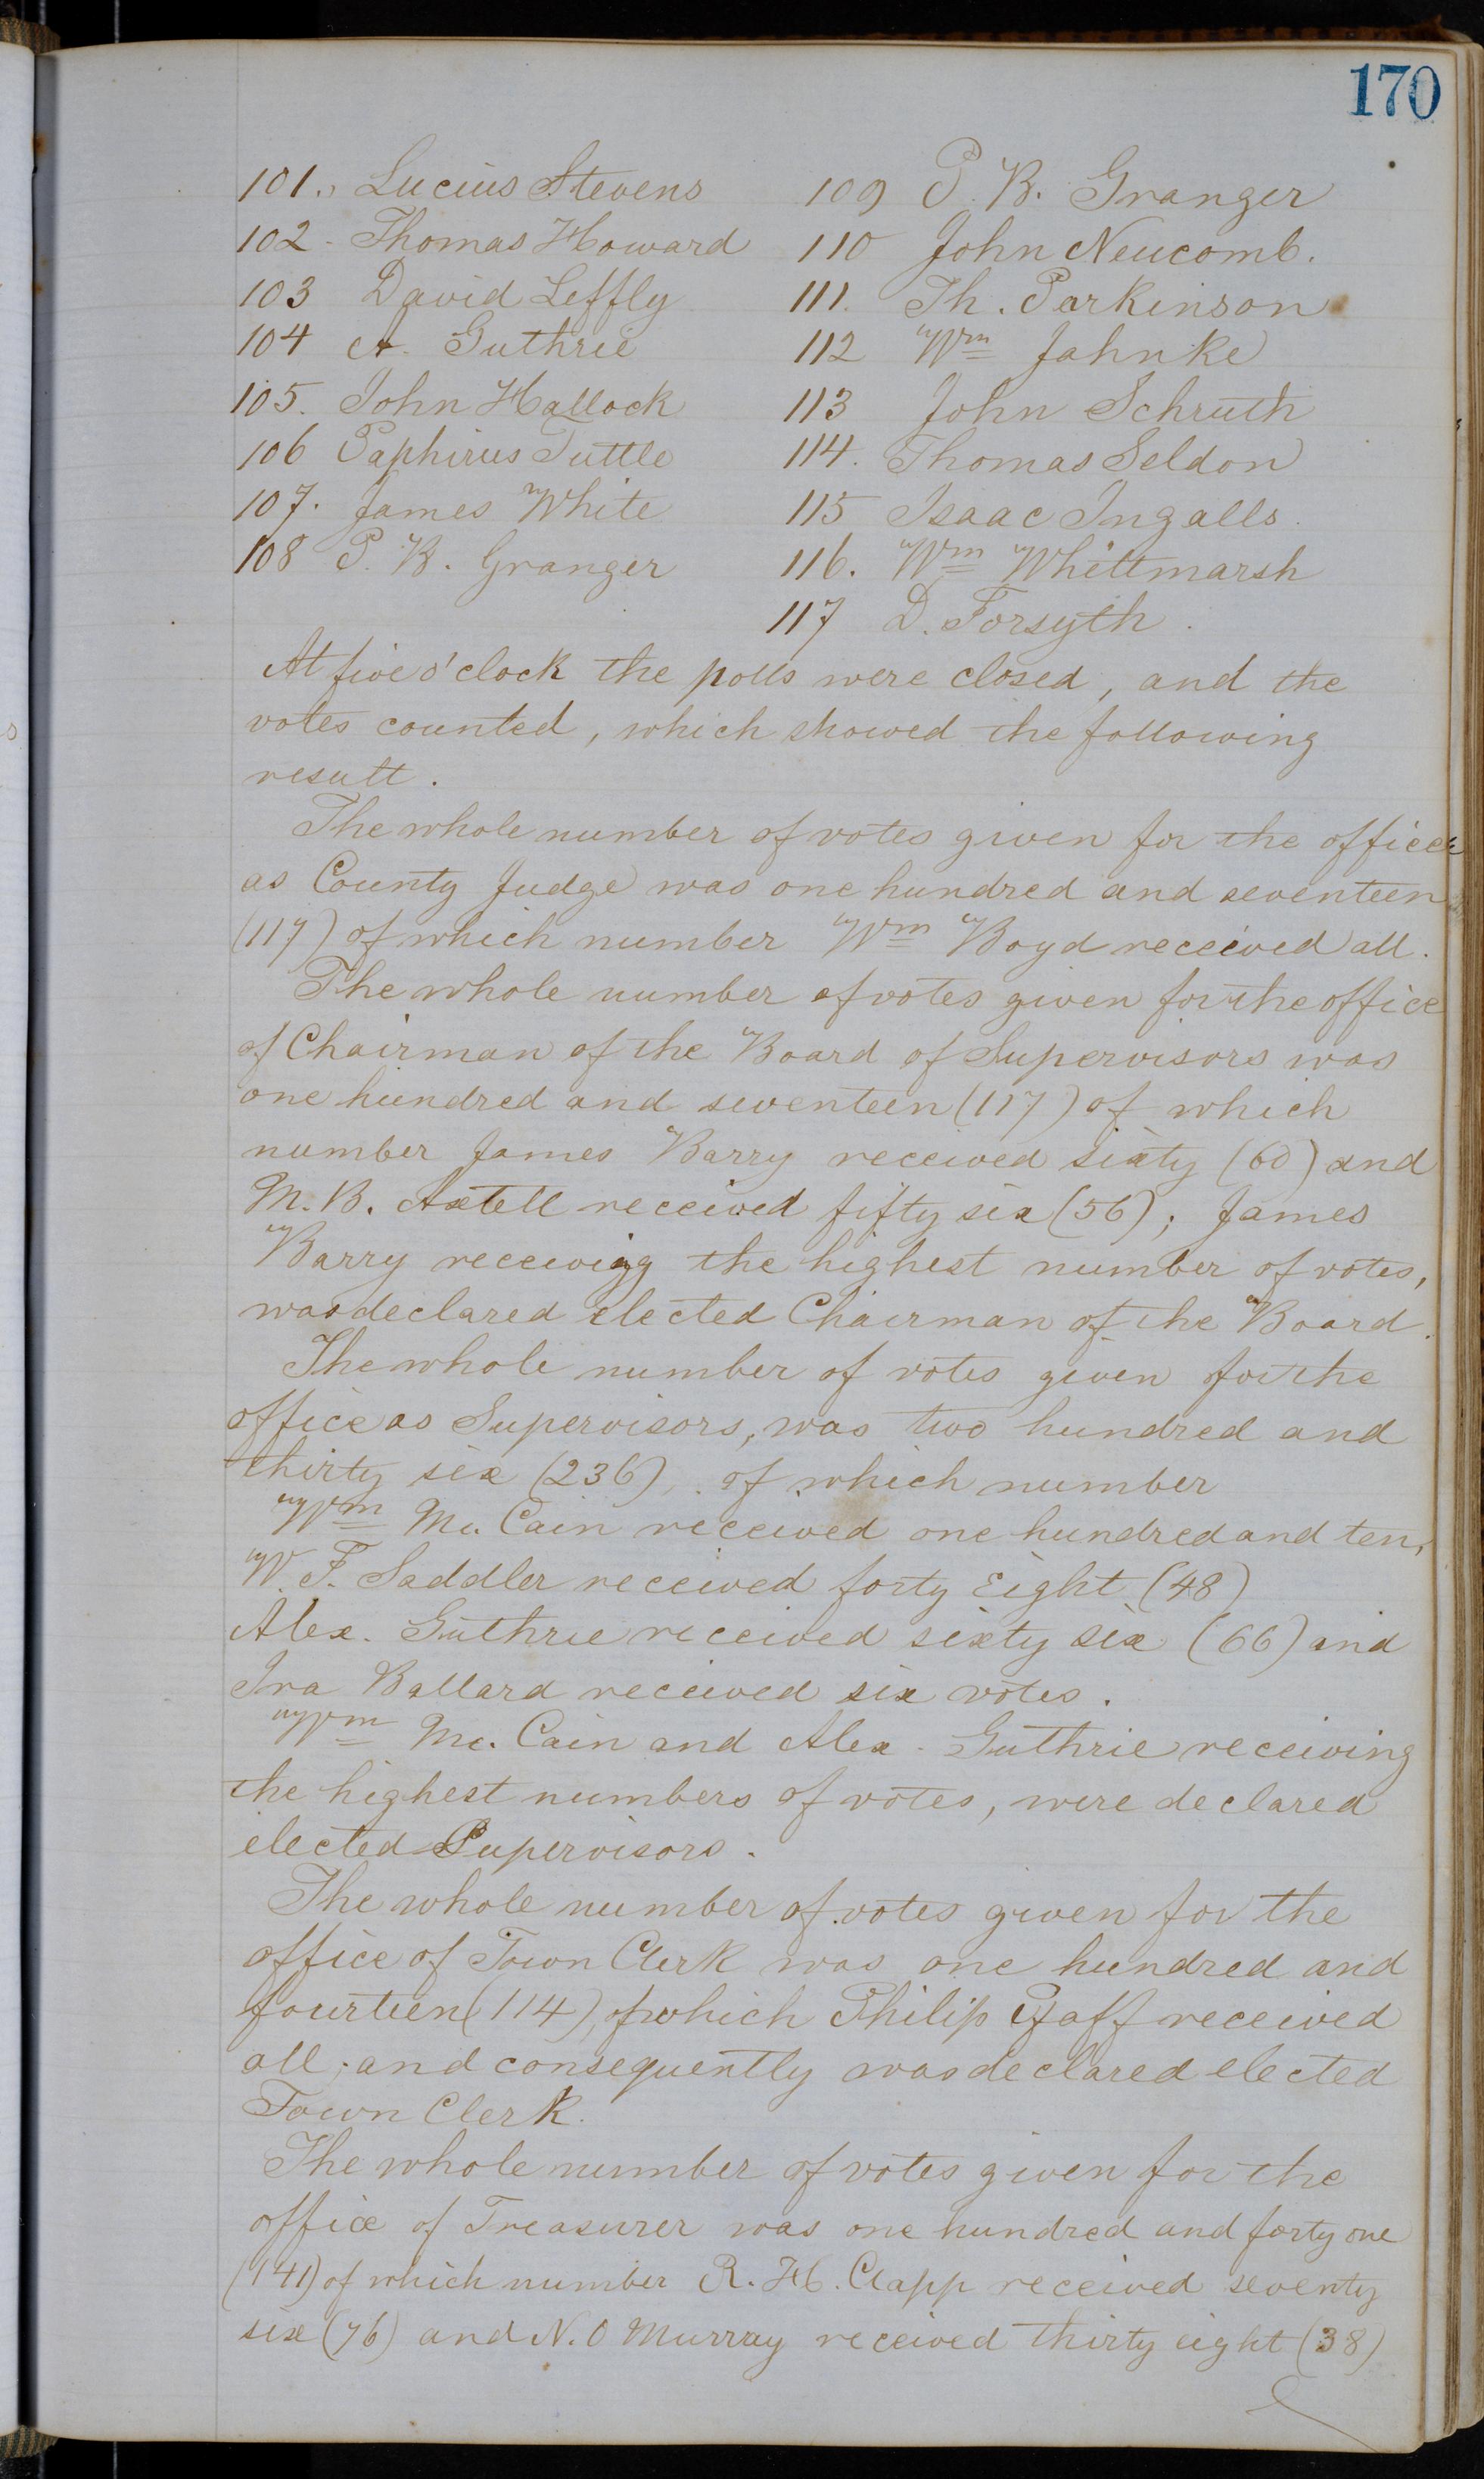 170
101. Lucius Stevens
102 - Thomas Howard
103 David Leffly
104 A. Guthrie
105. John Hallock
106 Paphirus Tuttle
107. James White
108 P. B. Granger
109 P. B. Granger
110 John Neucomb.
111. Th. Parkinson
112 Wm Jahnke
113 John Schruth
114. Thomas Seldon
115 Isaac Ingalls.
116. Wm Whittmarsh
117 D. Forsyth.
At five o'clock the polls were closed, and the
votes counted, which showed the following
result.
The whole number of votes given for the office
as County Judge was one hundred and seventeen
(117) of which number Wm Boyd received all.
The whole number of votes given for the office
of Chairman of the Board of Supervisors was
one hundred and seventeen (117) of which
number James Barry received sixty (60) and
M. B. Axtell received fifty six (56); James
Barry receivigg the highest number of votes,
was declared elected Chairman of the Board.
The whole number of votes given for the
office as Supervisors, was two hundred and
thirty six (236), of which number
Wm Mc. Cain received one hundred and ten,
W. F. Saddler received forty Eight (48)
Alex. Guthrie received sixty six (66) and
Ira Ballard received six votes.
Wm Mc. Cain and Alex. Guthrie receiving
the highest numbers of votes, were declared
elected Supervisors.
The whole number of votes given for the
office of Town Clerk was one hundred and
fourteen (114), of which Philip Pfaff received
all; and consequently was declared elected
Town Clerk.
The whole number of votes given for the
office of Treasurer was one hundred and forty one
(141) of which number R. H. Clapp received seventy
six (76) and N. O Murray received thirty eight (38)